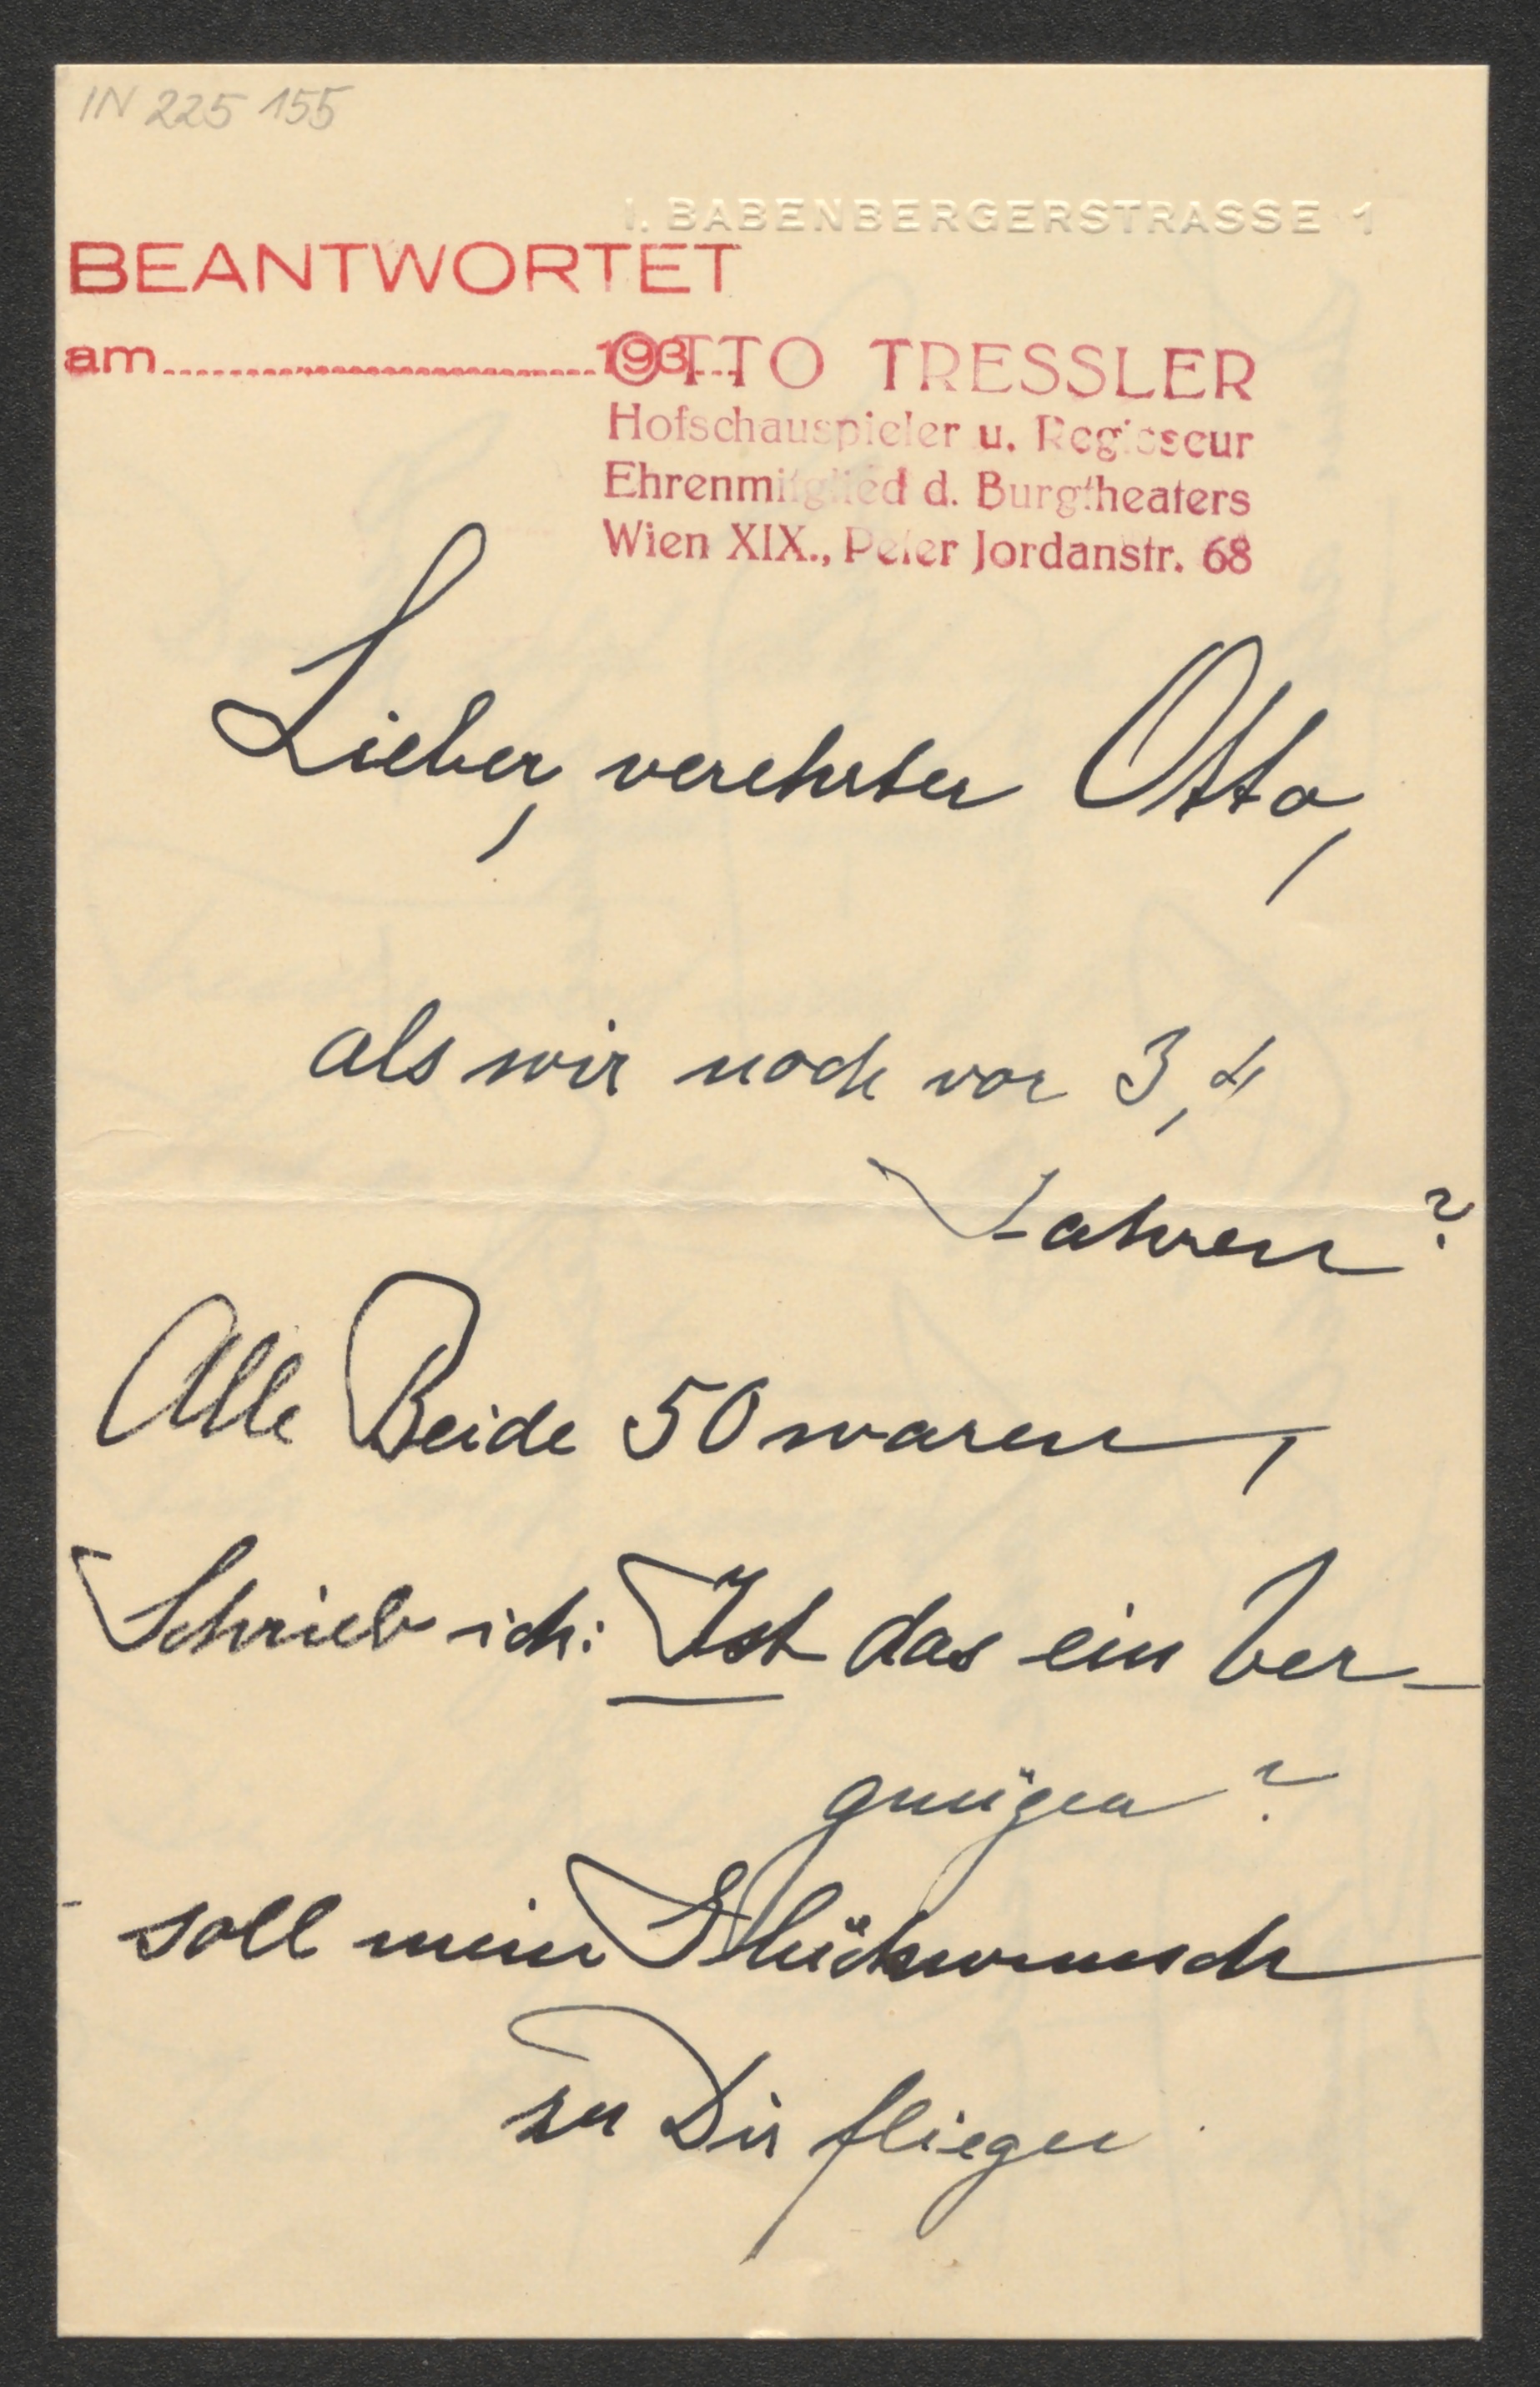 IN 225 155
I. BABENBERGERSTRASSE 1
BEANTWORTET
am 193
OTTO TRESSLER
Hofschauspieler u. Regisseur
Ehrenmitglied d. Burgtheaters
Wien XIX., Peter Jordanstr. 68
Lieber, verehrter Otto,
als wir noch vor 3, 4
Jahren?
Alle Beide 50 waren,
Schrieb ich: Ist das ein Ver-
gnügen?
- soll mein Glückwunsch
zu Dir fliegen